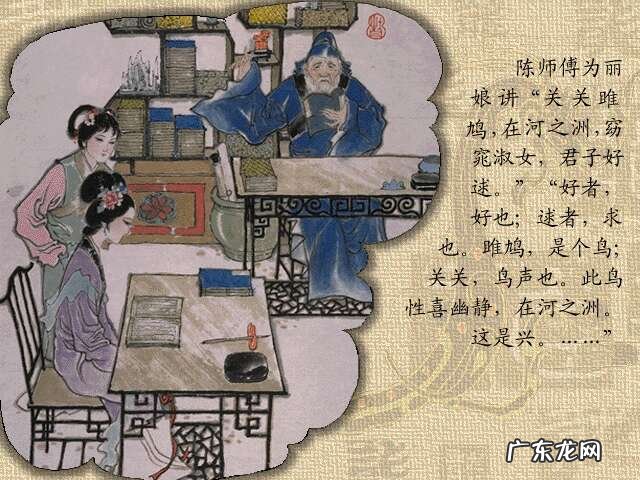 陈师傅为丽
娘讲“关关雎
鸠,在河之洲,窈
窕淑女,君子好
逑。”“好者,
好也;逑者,求
也。雎鸠,是个鸟;
关关,鸟声也。此鸟
性喜幽静,在河之洲。
这是兴。……”
广东龙网